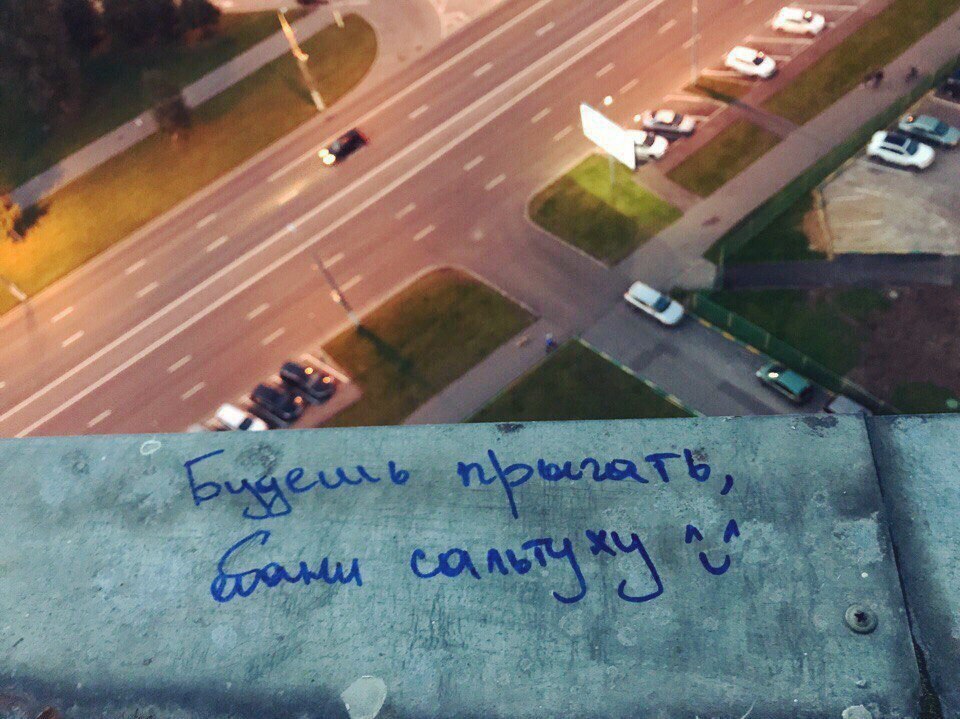 Будешь прыгать,
ебани сальтуху ^⌣^